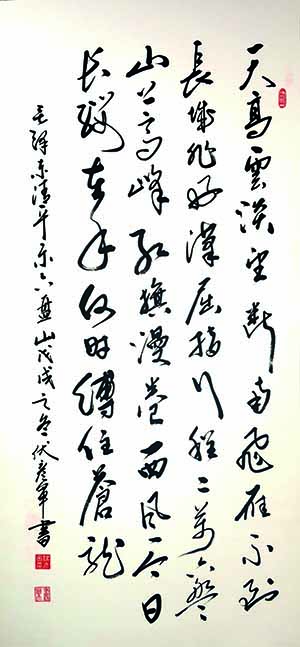 天高雲淡望斷南飛雁不到
長城非好漢屈指行程二萬六盤
山上高峰紅旗漫卷西風今日
长纓在手何時縛住蒼龍
毛澤东清平乐六盤山戊戌之冬伏彦军書